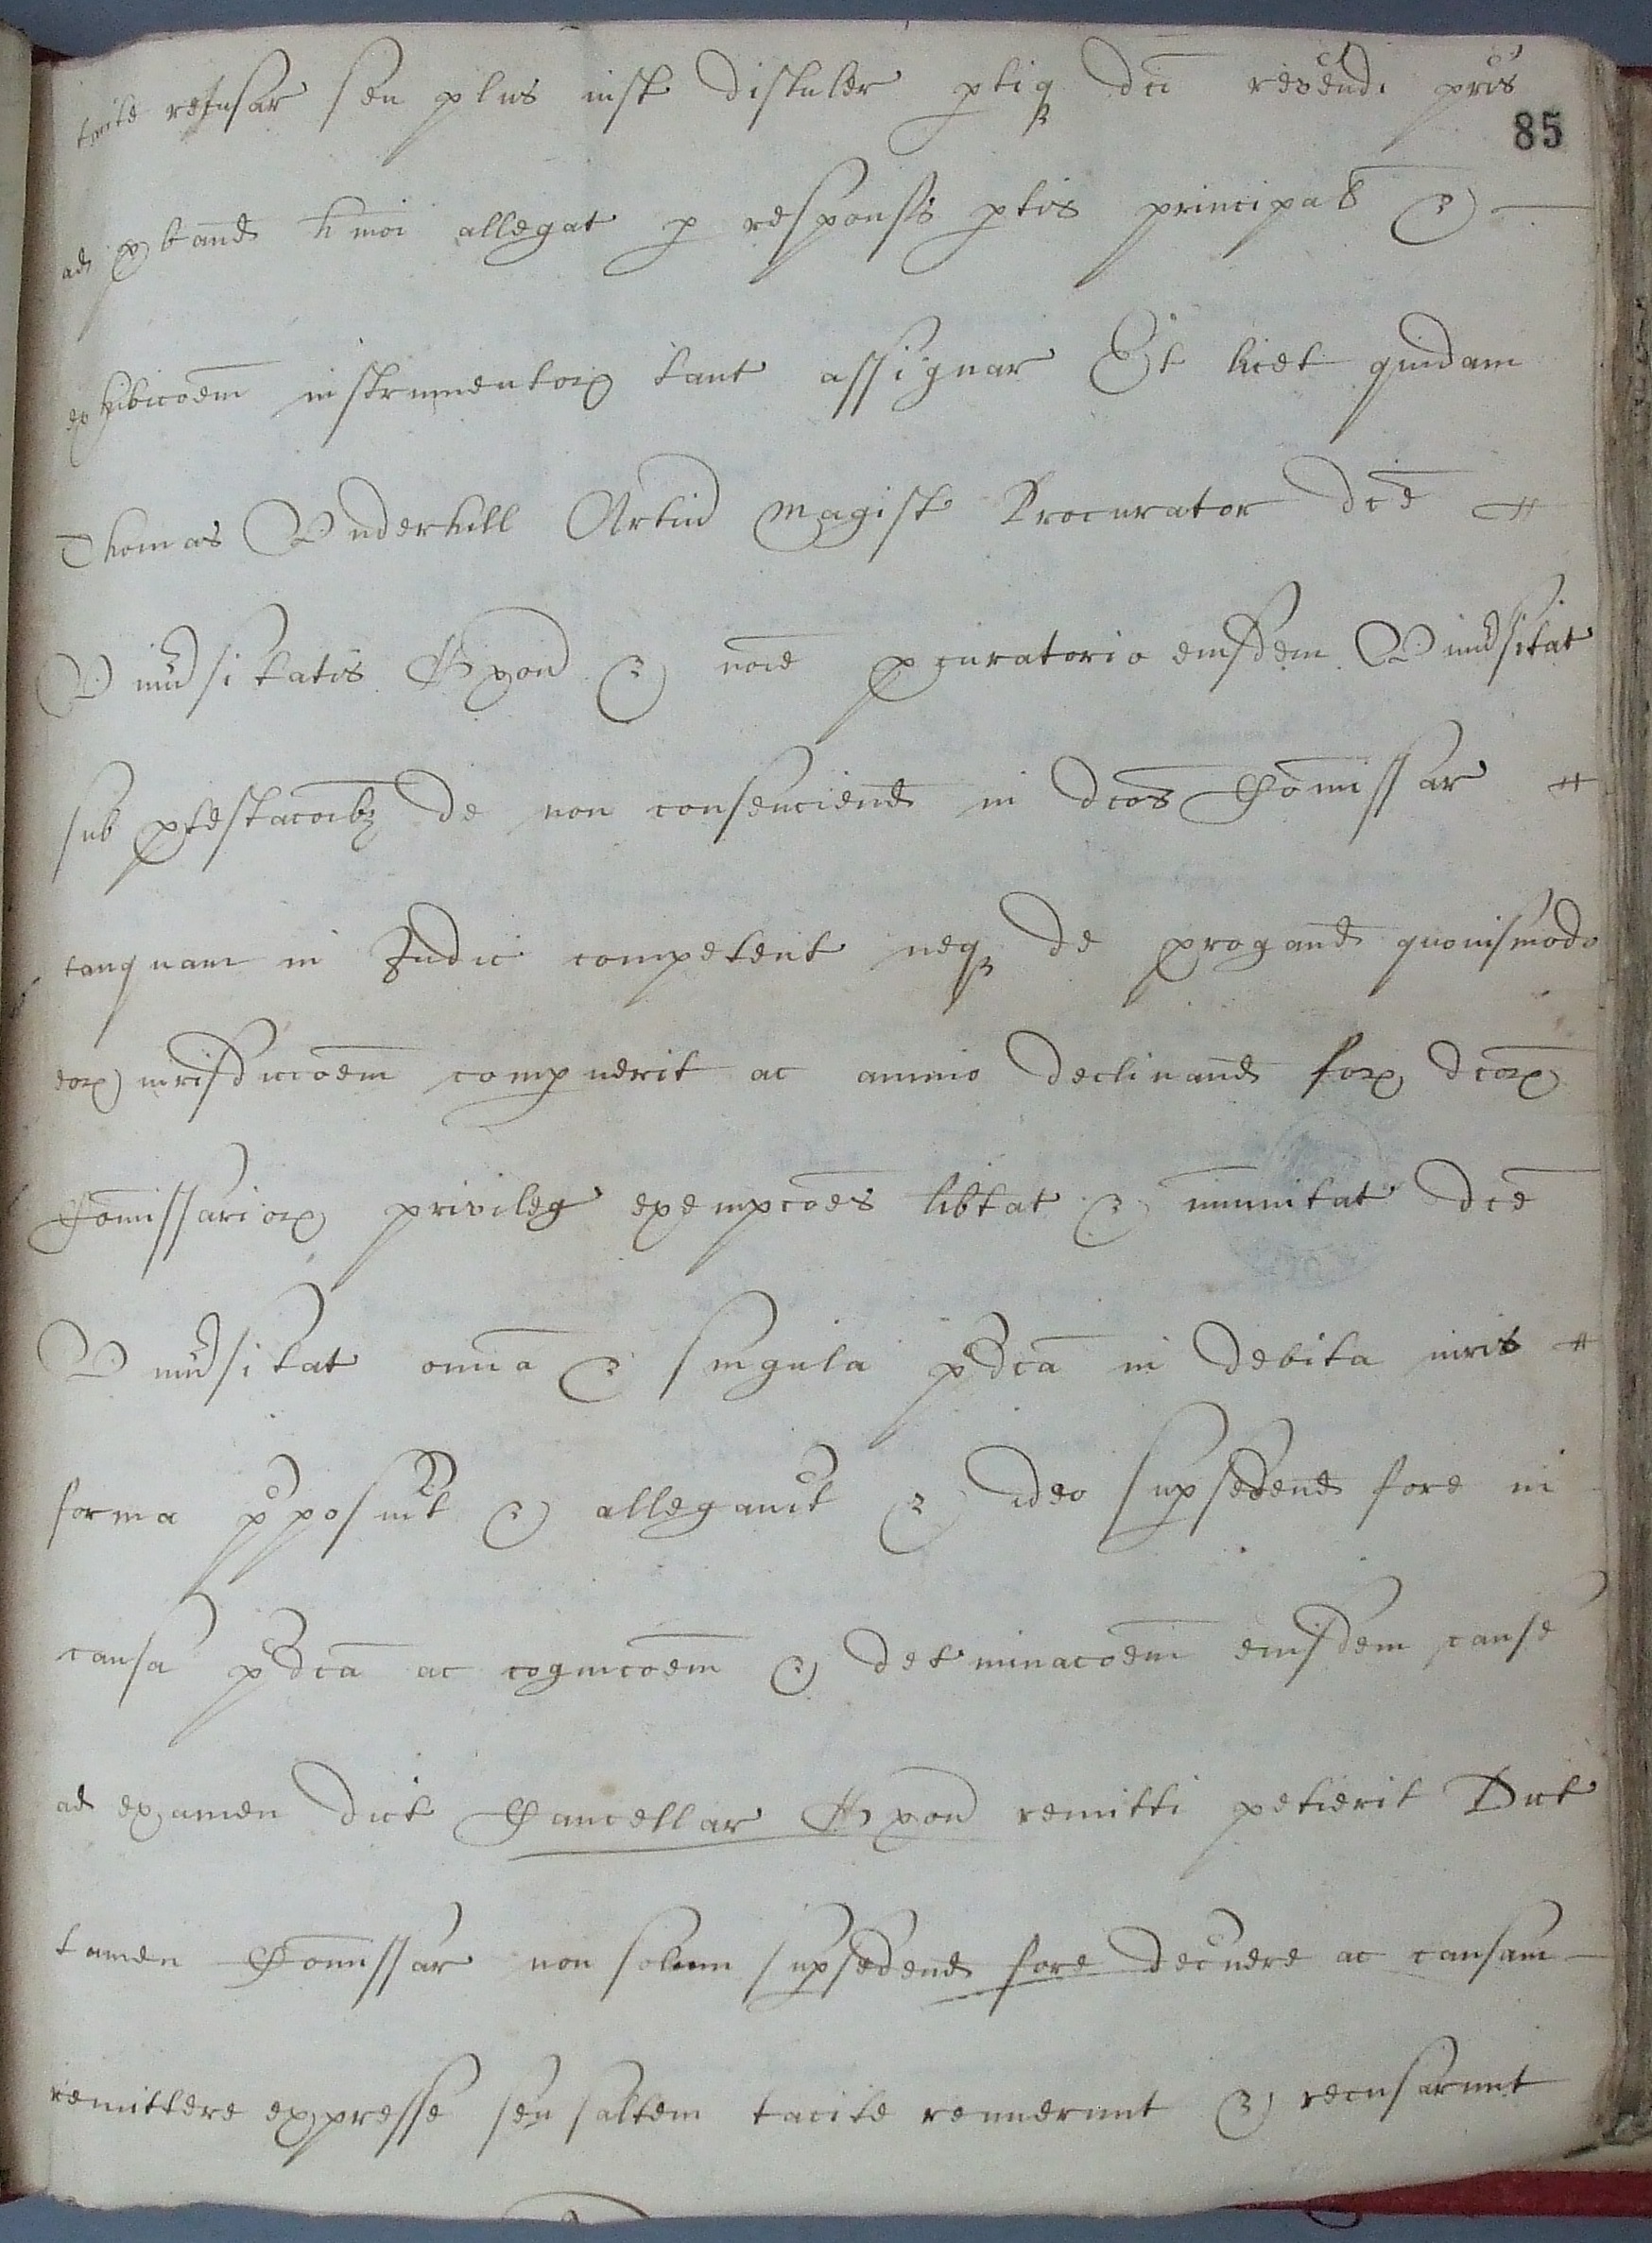 tacite refusar seu plus iust distuler ptiq dci revendi pris
85
ad pband hmoi allegat p respons ptis principal et
exhibicoem instrumentor tant assignar Et licet quidam
Thomas Vnderhill Artiu Magist Procurator dce
Vniusitatis Oxon et noie pcuratorio eiusdem Vniusitat
sub ptestacoibz de non consenciend in dcos Comissar
tanquam in Judic competent neq de progand quouismodo
eor iurisdiccoem compuerit ac animo declinand for dcor
Comissarior privileg exempcoes libtat et imunitat dce
Vniusitat omia et singula pdca in debita iuris
forma pposuit et allegauit et ideo supsedend fore in
causa pdca ac cognicoem et detminacoem eiusdem cause
ad examen dict Cancellar Oxon remitti petierit Dict
tamen Comissar non solum supsedend fore decnere ac causam
remittere expresse seu saltem tacite renuerunt et recusarunt